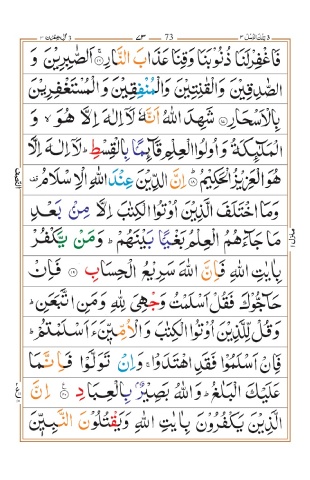 تلك الرسل ٣ ٧٣ 73 ال عمران ٣
فَاغْفِرْلَنَا ذُنُوْبَنَا وَقِنَا عَذَابَ النَّارِ ۝١٦ اَلصّٰبِرِيْنَ وَ
الصّٰدِقِيْنَ وَالْقٰنِتِيْنَ وَالْمُنْفِقِيْنَ وَالْمُسْتَغْفِرِيْنَ
بِالْاَسْحَارِ ۝١٧ شَهِدَ اللّٰهُ اَنَّهٗ لَاۤ اِلٰهَ اِلَّا هُوَ ۙ وَ
الْمَلٰٓئِكَةُ وَاُولُوا الْعِلْمِ قَآئِمًۢا بِالْقِسْطِ ؕ لَاۤ اِلٰهَ اِلَّا
هُوَ الْعَزِيْزُ الْحَكِيْمُ ؕ ۝١٨ اِنَّ الدِّيْنَ عِنْدَ اللّٰهِ الْاِسْلَامُ ۫
وَمَا اخْتَلَفَ الَّذِيْنَ اُوْتُوا الْكِتٰبَ اِلَّا مِنْۢ بَعْدِ
مَا جَآءَهُمُ الْعِلْمُ بَغْيًۢا بَيْنَهُمْ ؕ وَمَنْ يَّكْفُرْ
بِاٰيٰتِ اللّٰهِ فَاِنَّ اللّٰهَ سَرِيْعُ الْحِسَابِ ۝١٩ فَاِنْ
حَآجُّوْكَ فَقُلْ اَسْلَمْتُ وَجْهِيَ لِلّٰهِ وَمَنِ اتَّبَعَنِ ؕ
وَقُلْ لِّلَّذِيْنَ اُوْتُوا الْكِتٰبَ وَالْاُمِّيّٖنَ ءَاَسْلَمْتُمْ ؕ
فَاِنْ اَسْلَمُوْا فَقَدِ اهْتَدَوْا ۚ وَاِنْ تَوَلَّوْا فَاِنَّمَا
عَلَيْكَ الْبَلٰغُ ؕ وَاللّٰهُ بَصِيْرٌۢ بِالْعِبَادِ ۝٢٠ اِنَّ
الَّذِيْنَ يَكْفُرُوْنَ بِاٰيٰتِ اللّٰهِ وَيَقْتُلُوْنَ النَّبِيّٖنَ